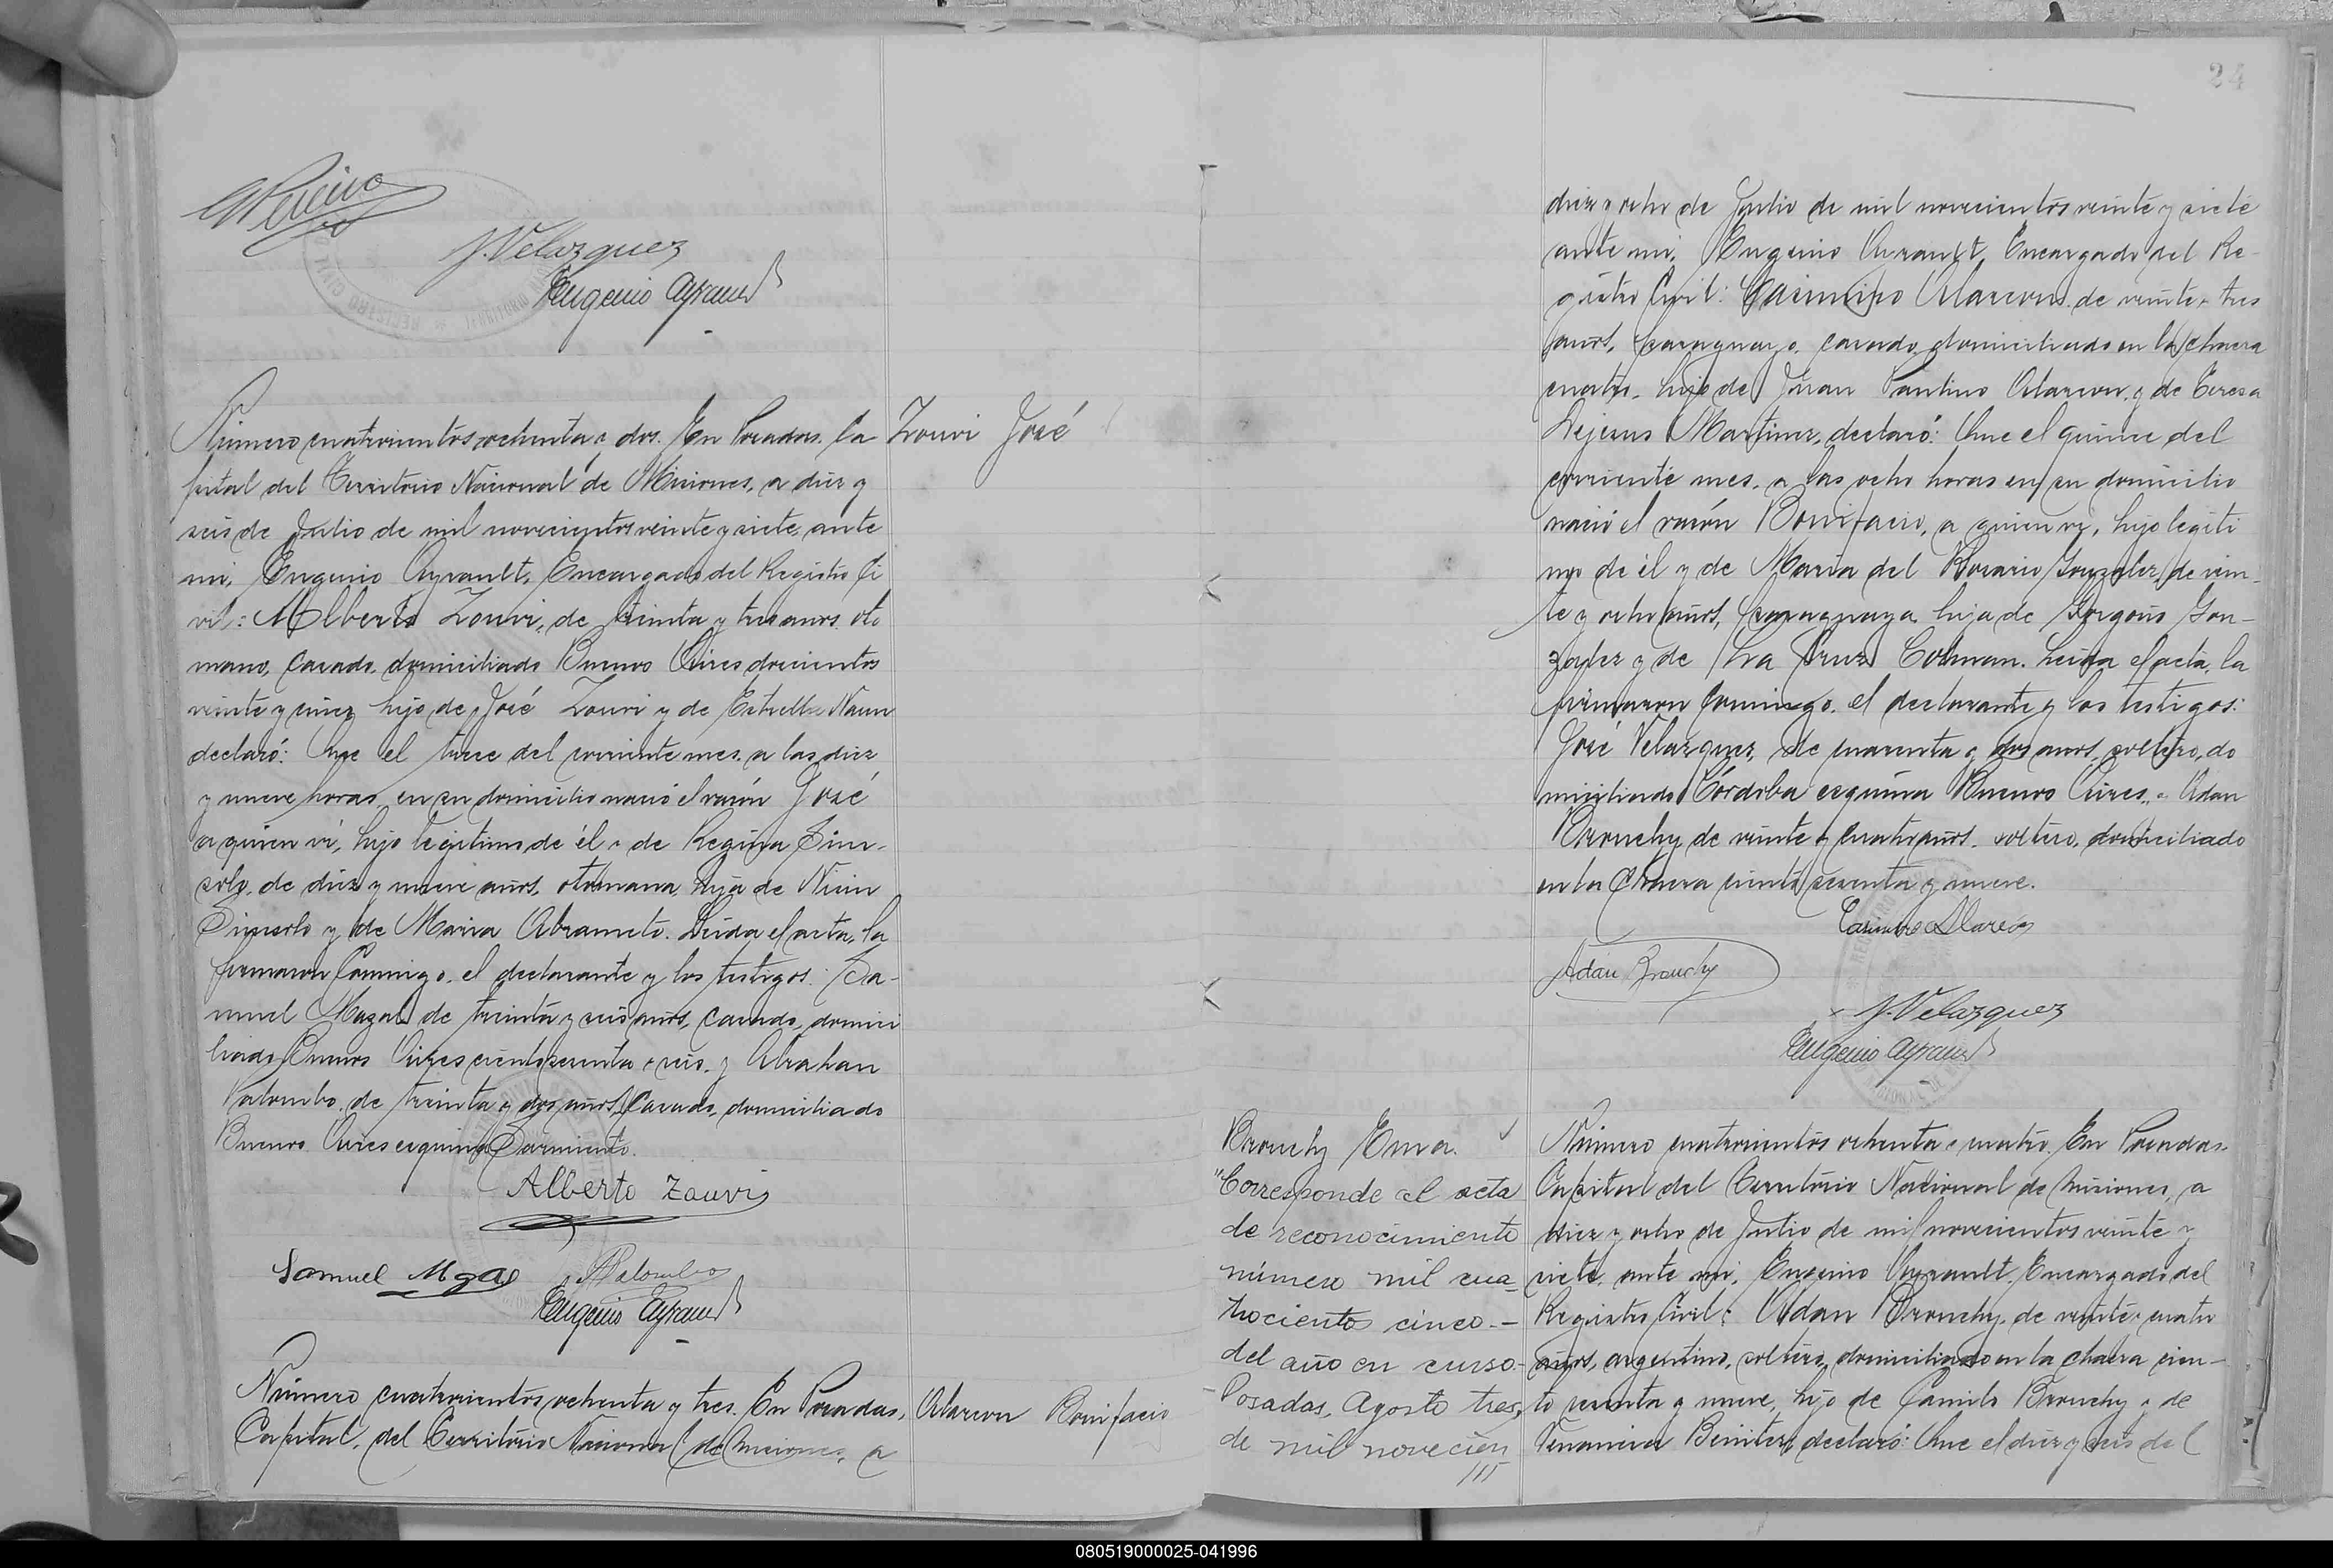 24
J. Velazquez
Eugenio Ayrault
Número cuatrocientos ochenta y dos. En Posadas, Ca
pital del Territorio Nacional de Misiones, a diez y
seis de Julio de mil novecientos veinte y siete, ante
mi, Eugenio Ayrault, Encargado del Registro Ci
vil: Alberto Zouvi, de treinta y tres años, oto
mano, casado, domiciliado Buenos Aires doscientos
veinte y cinco hijo de José Zouvi y de Estrella Naun
declaró: Que el trece del corriente mes, a las diez
y nueve horas, en su domicilio nació el varón José
a quien ví, hijo legítimo de él y de Regina Sim-
solo, de diez y nueve años, otomana, hija de Nisin
Simsolo y de Maria Abrameto. Leída el acta, la
firmaron conmigo, el declarante y los testigos: Sa-
muel Mazal de treinta y seis años, casado, domici
liado Buenos Aires ciento sesenta y seis, y Abrahan
Palombo, de treinta y dos años, casado, domiciliado
Buenos Aires esquina Sarmiento.
Alberto Zouvi
Samuel Mzal Palombo
Eugenio Ayrault
Zouvi José
Número cuatrocientos ochenta y tres. En Posadas,
Capital, del Territorio Nacional de Misiones, a
Alarcon Bonifacio
diez y ocho de Julio de mil novecientos veinte y siete
ante mi, Eugenio Ayrault, Encargado del Re-
gistro Civil: Casimiro Alarcon, de veinte y tres
años, paraguayo, casado, domiciliado en la chacra
cuatro, hijo de Juan Pantino Alarcon, y de Teresa
Dejesus Martinez, declaró: Que el quince del
corriente mes, a las ocho horas en su domicilio
nació el varón Bonifacio, a quien ví, hijo legíti
mo de él y de Maria del Rosario Gonzalez, de vein-
te y ocho años, paraguaya, hija de Gorgoño Gon-
zalez y de Cruz Colman. Leida el acta, la
firmaron conmigo, el declarante y los testigos:
José Velazquez, de cuarenta y dos años, soltero, do
miciliado Córdoba esquina Buenos Aires, y Adan
Brouchy, de veinte y cuatro años, soltero, domiciliado
en la Chacra ciento sesenta y nueve.
Casimiro Alarcon
Adan Brouchy
J. Velazquez
Eugenio Ayrault
Brouchy Ema.
"Corresponde al acta
de reconocimiento
número mil cua-
trociento cinco.—
del año en curso.-
Posadas, Agosto tres,
de mil novecien
///
Número cuatrocientos ochenta y cuatro. En Posadas.
Capital del Territorio Nacional de Misiones, a
diez y ocho de Julio de mil novecientos veinte y
siete, ante mi, Eugenio Ayrault, Encargado del
Registro Civil: Adan Brouchy, de veinte y cuatro
años, argentino, soltero, domiciliado en la chacra cien-
to sesenta y nueve, hijo de Camilo Brouchy y de
Benitez, declaró: Que el diez y seis del
080519000025-041996